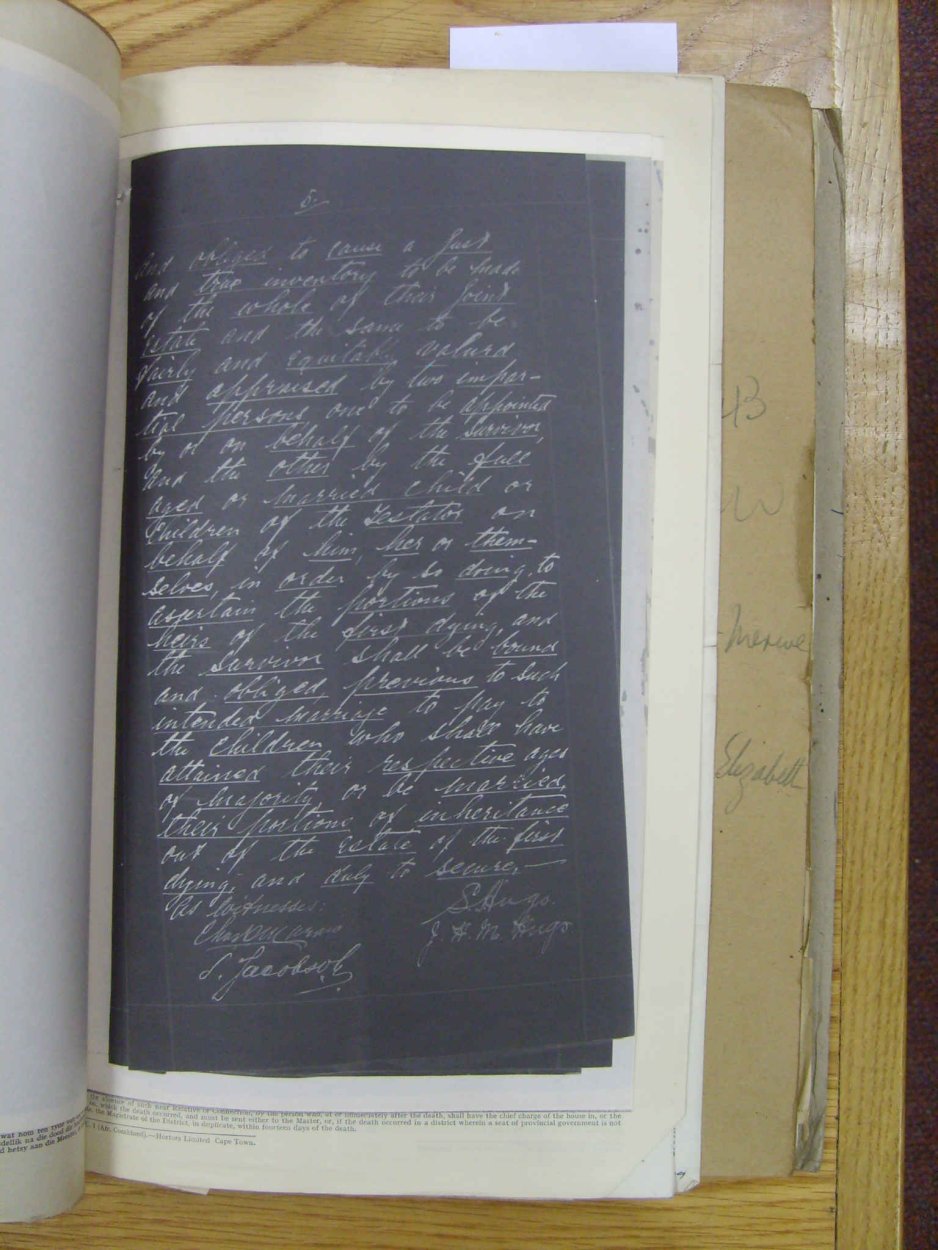 5.
and obliged to cause a just
and true inventory to be made
of the whole of their joint
estate and the same to be
fairly and equitably valued
and appraised by two impar-
tial persons one to be appointed
by or on behalf of the survivor,
and the other by the full
aged or married child or
children of the Testator on
behalf of him, her or them-
selves, in order by so doing, to
ascertain the portions of the
heirs of the first dying, and
the survivor shall be bound
and obliged previous to such
intended marriage to pay to
the children who shall have
attained their respective ages
of majority, or be married,
their portions of inheritance
out of the estate of the first
dying, and duly to secure,—
As Witnesses:
S. Hugo.
J. H. M. Hugo.
S. Jacobsohn
43
W
Merwe
Elizabeth
the absence of such near Relative or Connection, by the person who, at or immediately after the death, shall have the chief charge of the house in, or the
on, which the death occurred, and must be sent either to the Master, or, if the death occurred in a district wherein a seat of provincial government is not
the Magistrate of the District, in duplicate, within fourteen days of the death.
(Afr. Combined).—Hortors Limited Cape Town.